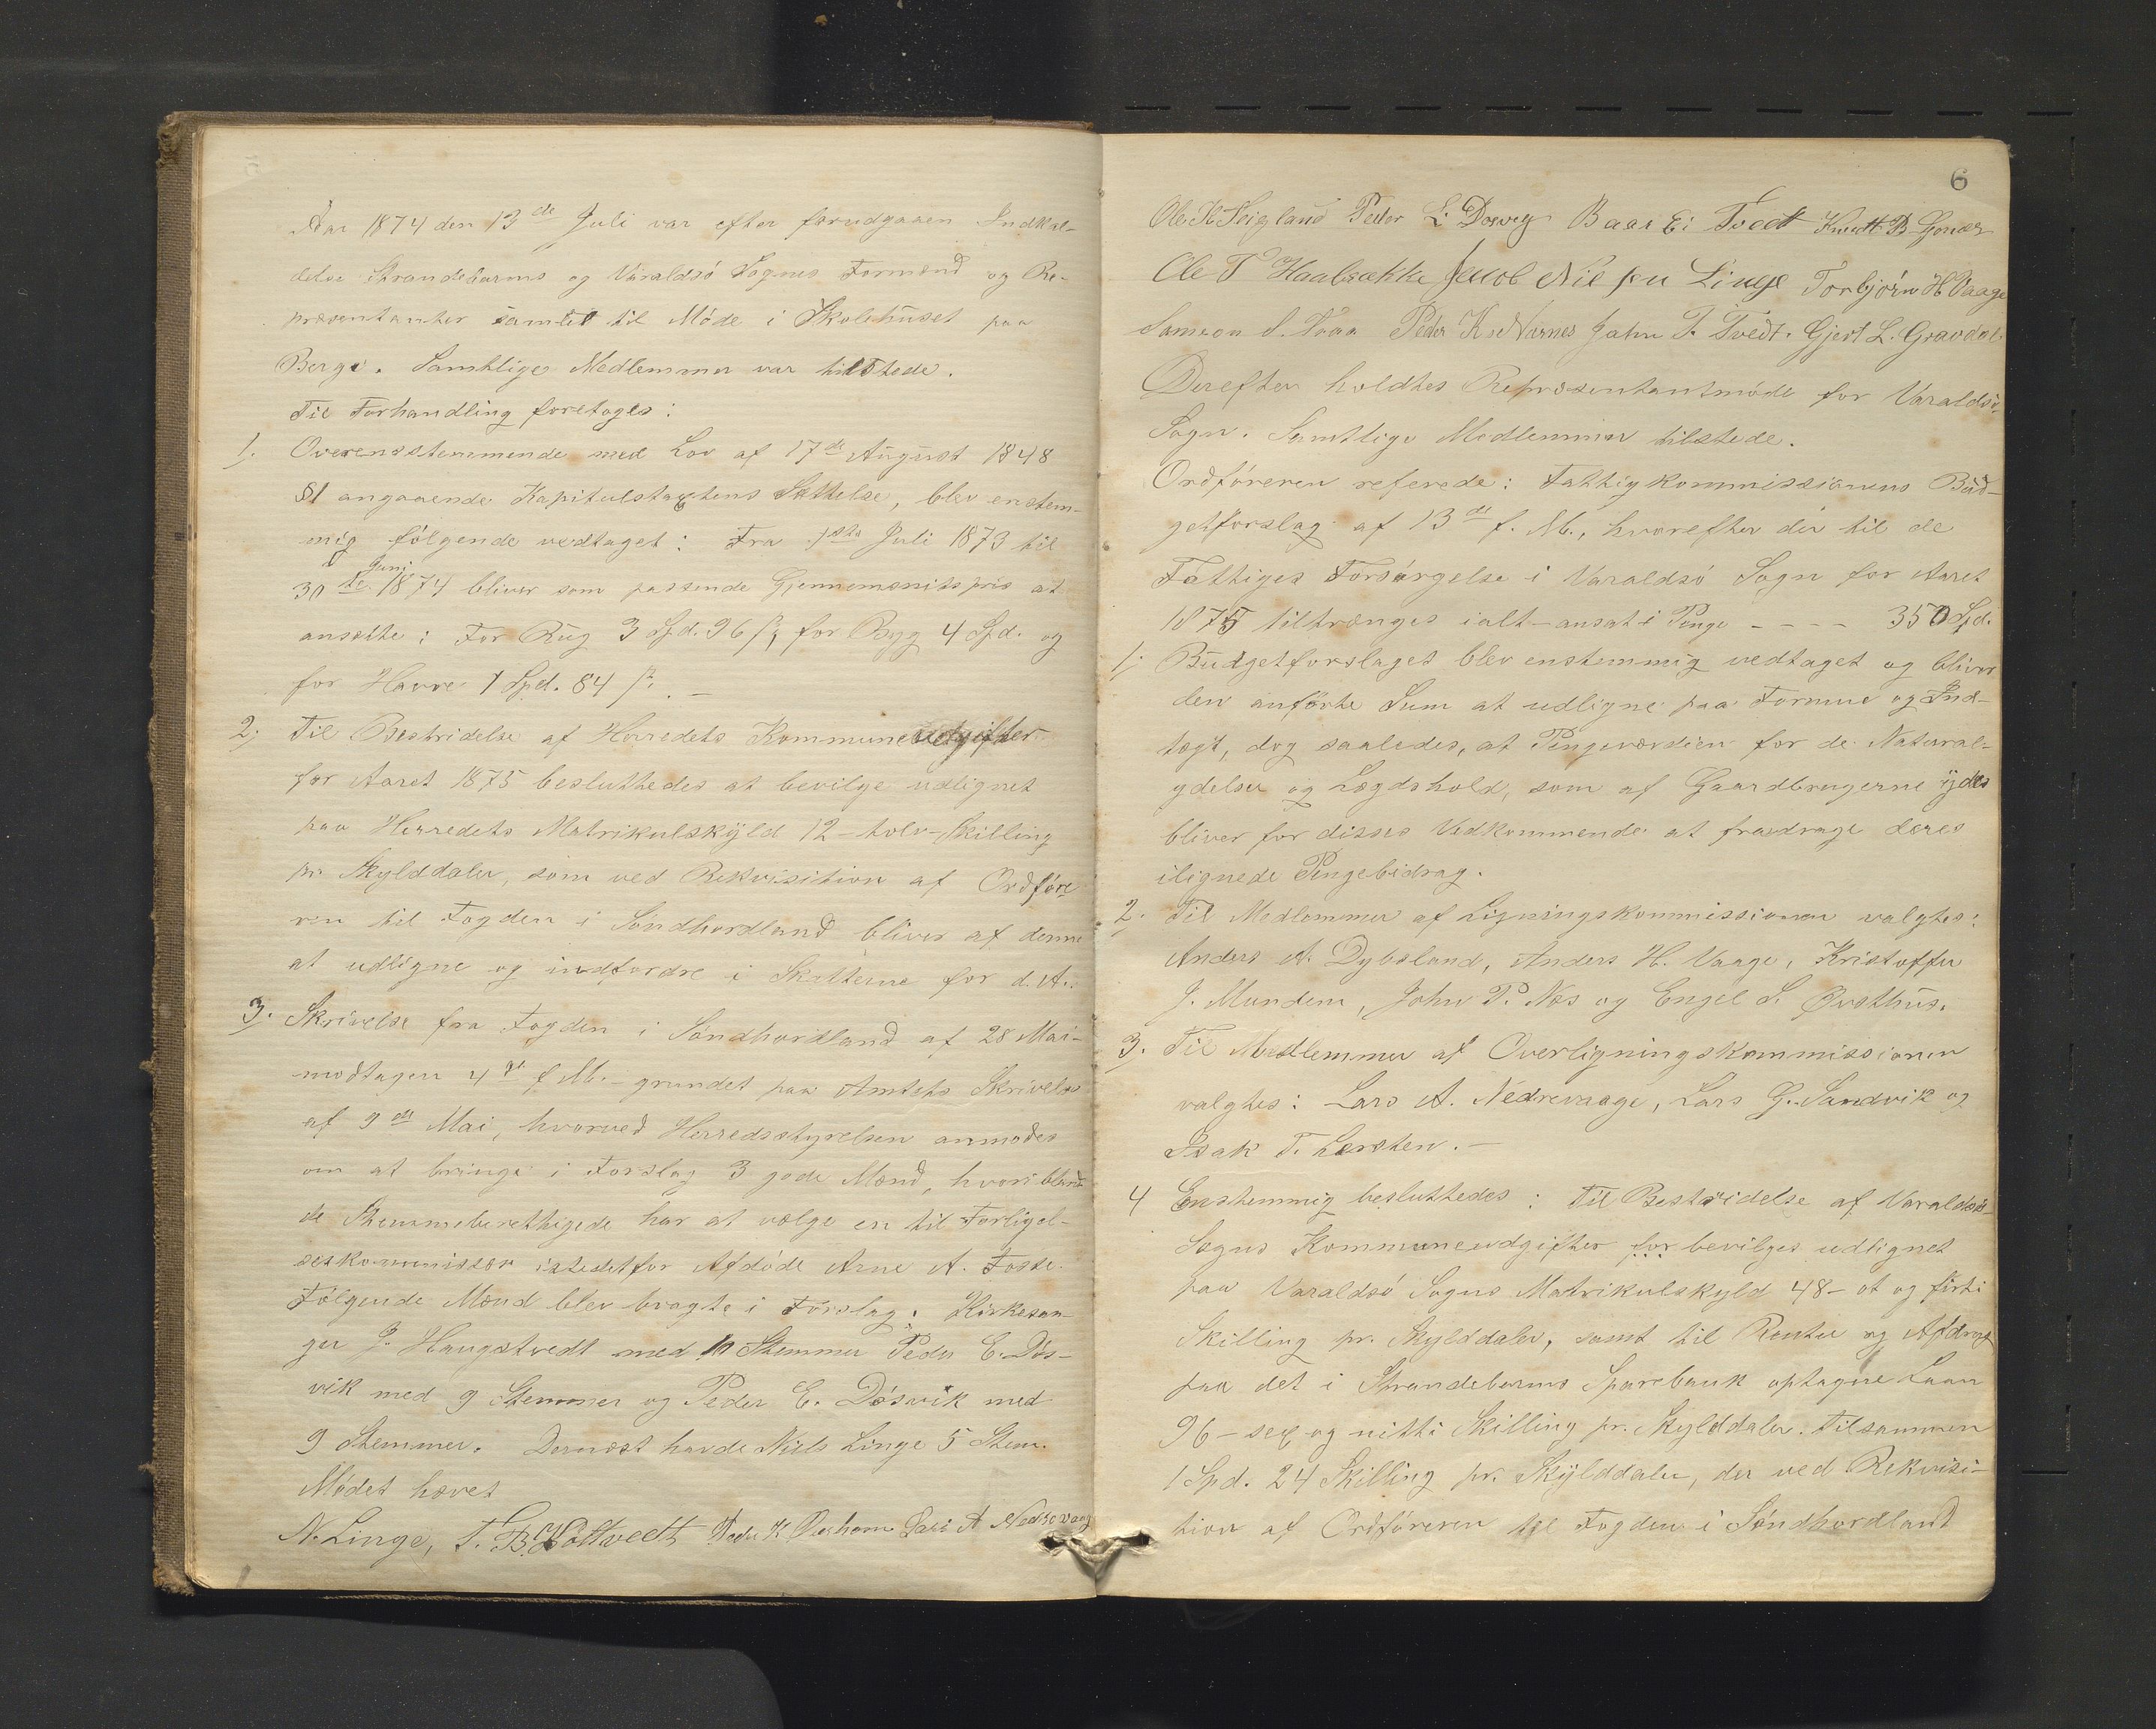 Aar 1874 den 13de Juli var efter forudgaaen Indkal-
delse Strandebarms og Varaldsö Sognes Formænd og Re-
præsentanter samlet til Möde i Skolehuset paa
Berge. Samtlige Medlemmer var tilstede.
Til Forhandling foretoges:
1. Overensstemmende med Lov af 17de August 1848
§1 angaaende Kapitulstaxtens Sættelse, blev enstem-
mig fölgende vedtaget: Fra 1ste Juli 1873 til
30te Juni 1874 bliver som passende Gjennemsnitspris at
ansætte: For Rug 3 Spd. 96 ß, for Byg 4 Spd. og
for Havre 1 Spd. 84 ß. —
2; Til Bestridelse af Herredets Kommuneudgifter
for Aaret 1875 besluttedes at bevilge udlignet
paa Herredets Matrikulskyld 12 - tolv - Skilling
pr. Skylddaler, som ved Rekvisition af Ordföre
ren til Fogden i Söndhordland bliver af denne
at udligne og indfordre i Skatterne for d. A.
3. Skrivelse fra Fogden i Söndhordland af 28 Mai-
modtagen 4de f. M. - grundet paa Amtets Skrivelse
af 9de Mai, hvorved Herredsstyrelsen anmodes
om at bringe i Forslag 3 gode Mænd, hvoriblandt
de Stemmeberettigede har at vælge en til Forligel-
seskommissær istedetfor Afdöde Arne A. Fosse.
Fölgende Mænd blev bragte i Forslag: Kirkesan-
ger J. Haugstvedt med 10 Stemmer Peder E. Dös-
vik med 9 Stemmer og Peder E. Dösvik med
9 Stemmer. Dernæst havde Niels Linge 5 Stem.
Mödet hævet
N. Linge, T. B. Holtvedt Peder K Lars A Nedrevaage
6
Ole H Peder L. Dosvig Baar Ei Tvedt Knudt B
Ole T Haalsækka Jacob Nilsen Linge Torbjörn H Vaage
Samson S. Peder K. Nærnes John J. Tvedt. Gjert L. Gravdal.
Derefter holdtes Repræsentantmöde for Varaldsö
Sogn. Samtlige Medlemmer tilstede.
Ordföreren referede: Fattigkommissionens Büd-
getforslag af 13de f. M., hvorefter der til de
Fattiges Forsörgelse i Varaldsö Sogn for Aaret
1875 tiltrænges ialt - ansat i Penge - - - - 350 Spd.
1; Budgetforslaget blev enstemmig vedtaget og bliver
den anförte Sum at udligne paa Formue og Ind-
tægt, dog saaledes, at Pengeværdien for de Natural-
ydelser og Lægdshold, som af Gaardbrugerne ydes
bliver for disses Vedkommende at fradrage deres
ilignede Pengebidrag.
2. Til Medlemmer af Ligningskommissionen valgtes:
Anders A. Dybsland, Anders H. Vaage, Kristoffer
J. Mundem, John P. Næs og Engel S. Qvsthus.
3. Til Medlemmer af Overligningskommissionen
valgtes: Lars A. Nedrevaage, Lars G. Sandvik og
Isak T. Lersten. —
4 Enstemmig besluttedes: Til Bestridelse af Varaldsö-
Sogns Kommuneudgifter for bevilges udlignet
paa Varaldsö Sogns Matrikulskyld 48 - ot og firti
Skilling pr. Skylddaler, samt til Renter og Afdrag
paa det i Strandebarms Sparebank optagne Laan
96 - sex og nitti Skilling pr. Skylddaler. Tilsammen
1 Spd. 24 Skilling pr. Skylddaler, der ved Rekvisi-
tion af Ordföreren til Fogden i Söndhordland